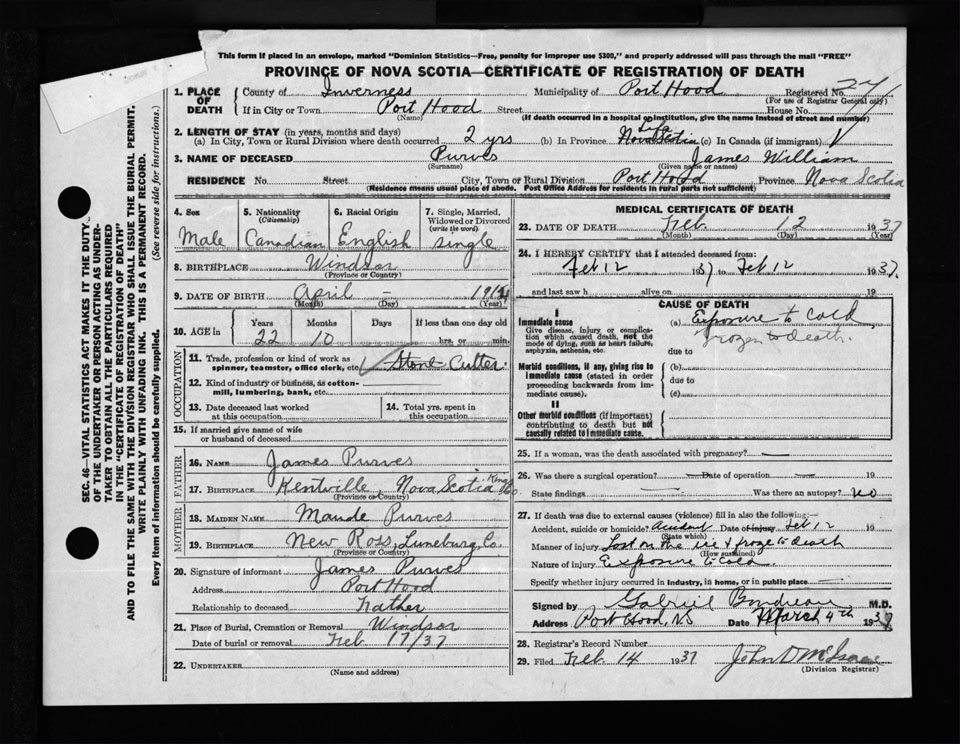 This form if placed in an envelope, marked "Dominion Statistics—Free, penalty for improper use $300," and properly addressed will pass through the mail "FREE"
PROVINCE OF NOVA SCOTIA—CERTIFICATE OF REGISTRATION OF DEATH
1. PLACE OF DEATH
County of Inverness Municipality of Port Hood Registered No. 24
(For use of Registrar General only)
If in City or Town Port Hood Street House No.
(Name) (If death occurred in a hospital or institution, give the name instead of street and number)
2. LENGTH OF STAY (in years, months and days)
(a) In City, Town or Rural Division where death occurred 2 yrs (b) In Province Life Nova Scotia (c) In Canada (if immigrant)
3. NAME OF DECEASED Purves James William
(Surname) (Given name or names)
RESIDENCE No. Street City, Town or Rural Division Port Hood Province Nova Scotia
(Residence means usual place of abode. Post Office Address for residents in rural parts not sufficient)
4. Sex
Male
5. Nationality
(Citizenship)
Canadian
6. Racial Origin
English
7. Single, Married, Widowed or Divorced
(write the word)
single
8. BIRTHPLACE Windsor
(Province or Country)
9. DATE OF BIRTH April – 1914
(Month) (Day) (Year)
10. AGE in
Years Months Days If less than one day old
22 10 hrs. or min.
OCCUPATION
11. Trade, profession or kind of work as spinner, teamster, office clerk, etc. Stone Cutter
12. Kind of industry or business, as cotton-mill, lumbering, bank, etc.
13. Date deceased last worked at this occupation
14. Total yrs. spent in this occupation
15. If married give name of wife or husband of deceased
FATHER
16. NAME James Purves
17. BIRTHPLACE Kentville, Nova Scotia Kings Co.
(Province or Country)
MOTHER
18. MAIDEN NAME Maude Purves
19. BIRTHPLACE New Ross, Luneburg Co.
(Province or Country)
20. Signature of informant James Purves
Address Port Hood
Relationship to deceased Father
21. Place of Burial, Cremation or Removal Windsor
Date of burial or removal Feb 17/37
22. UNDERTAKER
(Name and address)
MEDICAL CERTIFICATE OF DEATH
23. DATE OF DEATH Feb. 12 1937
(Month) (Day) (Year)
24. I HEREBY CERTIFY that I attended deceased from:
Feb 12 1937 to Feb 12 1937.
and last saw h alive on 19
CAUSE OF DEATH
I
Immediate cause
Give disease, injury or complication which caused death, not the mode of dying, such as heart failure, asphyxia, asthenia, etc.
(a) Exposure to cold,
frozen to death.
due to
Morbid conditions, if any, giving rise to immediate cause (stated in order proceeding backwards from immediate cause).
(b)
due to
(c)
II
Other morbid conditions (if important) contributing to death but not causally related to immediate cause.
25. If a woman, was the death associated with pregnancy? —
26. Was there a surgical operation? — Date of operation — 19
State findings — Was there an autopsy? no
27. If death was due to external causes (violence) fill in also the following:—
Accident, suicide or homicide? accident Date of injury Feb 12 19
(State which)
Manner of injury Lost on the ice & froze to death
(How sustained)
Nature of injury Exposure to Cold.
Specify whether injury occurred in industry, in home, or in public place —
Signed by Gabriel Boudreau M.D.
Address Port Hood, NS Date March 4th 1937
28. Registrar's Record Number
29. Filed Feb. 14 1937 John D McIsaac
(Division Registrar)
SEC. 46—VITAL STATISTICS ACT MAKES IT THE DUTY OF THE UNDERTAKER OR PERSON ACTING AS UNDERTAKER TO OBTAIN ALL THE PARTICULARS REQUIRED IN THE "CERTIFICATE OF REGISTRATION OF DEATH" AND TO FILE THE SAME WITH THE DIVISION REGISTRAR WHO SHALL ISSUE THE BURIAL PERMIT.
WRITE PLAINLY WITH UNFADING INK. THIS IS A PERMANENT RECORD.
Every item of information should be carefully supplied. (See reverse side for instructions.)